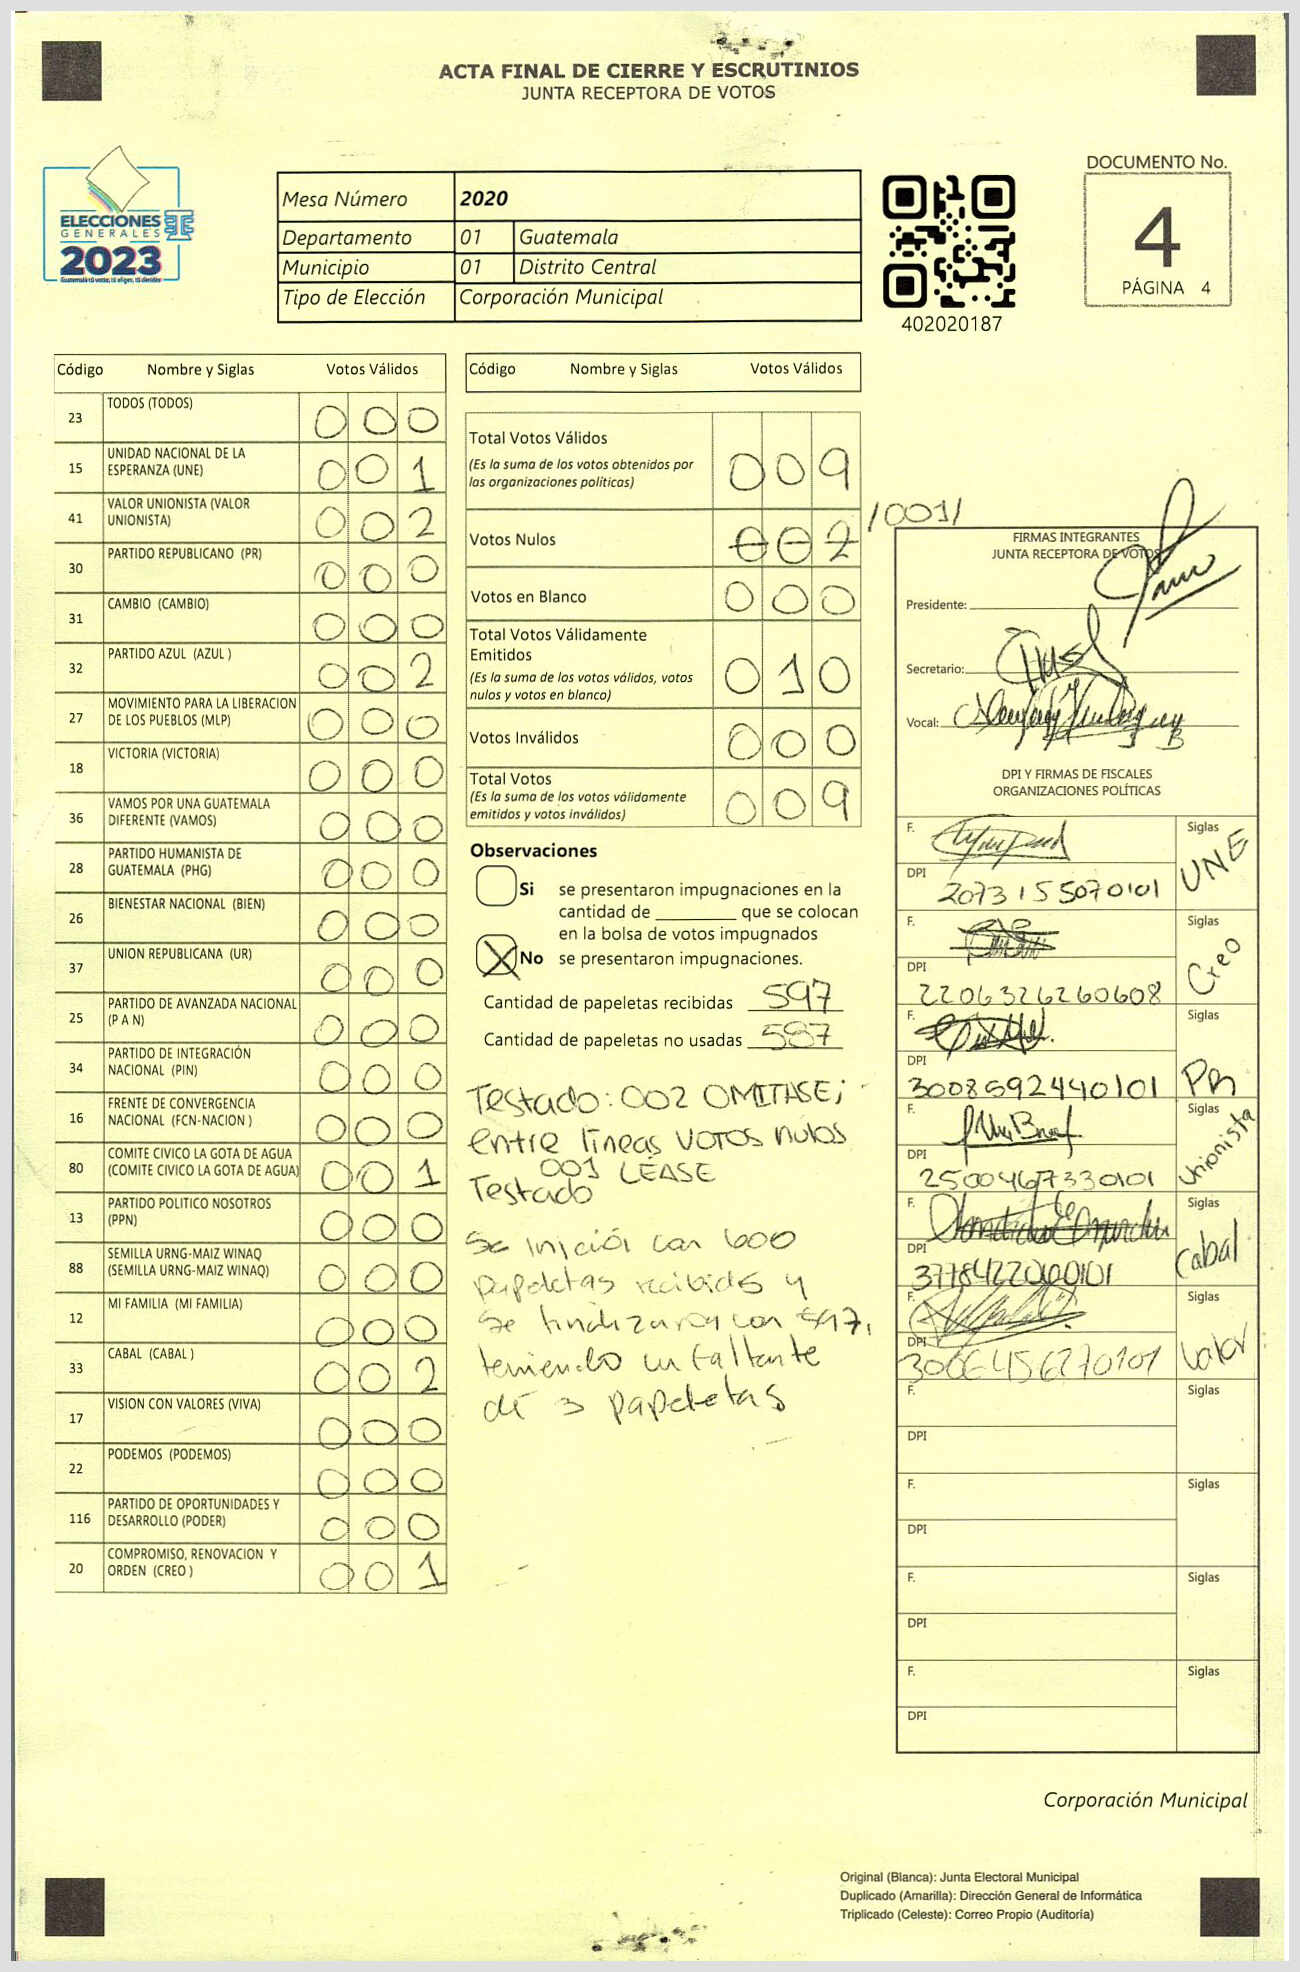 ACTA FINAL DE CIERRE Y ESCRUTINIOS
JUNTA RECEPTORA DE VOTOS
ELECCIONES
GENERALES
2023
Guatemala tú votas, tú eliges, tú decides
Mesa Número 2020
Departamento 01 Guatemala
Municipio 01 Distrito Central
Tipo de Elección Corporación Municipal
402020187
DOCUMENTO No.
4
PÁGINA 4
Código Nombre y Siglas Votos Válidos
23 TODOS (TODOS) 0 0 0
15 UNIDAD NACIONAL DE LA
ESPERANZA (UNE) 0 0 1
41 VALOR UNIONISTA (VALOR
UNIONISTA) 0 0 2
30 PARTIDO REPUBLICANO (PR) 0 0 0
31 CAMBIO (CAMBIO) 0 0 0
32 PARTIDO AZUL (AZUL ) 0 0 2
27 MOVIMIENTO PARA LA LIBERACION
DE LOS PUEBLOS (MLP) 0 0 0
18 VICTORIA (VICTORIA) 0 0 0
36 VAMOS POR UNA GUATEMALA
DIFERENTE (VAMOS) 0 0 0
28 PARTIDO HUMANISTA DE
GUATEMALA (PHG) 0 0 0
26 BIENESTAR NACIONAL (BIEN) 0 0 0
37 UNION REPUBLICANA (UR) 0 0 0
25 PARTIDO DE AVANZADA NACIONAL
(P A N) 0 0 0
34 PARTIDO DE INTEGRACIÓN
NACIONAL (PIN) 0 0 0
16 FRENTE DE CONVERGENCIA
NACIONAL (FCN-NACION ) 0 0 0
80 COMITE CIVICO LA GOTA DE AGUA
(COMITE CIVICO LA GOTA DE AGUA) 0 0 1
13 PARTIDO POLITICO NOSOTROS
(PPN) 0 0 0
88 SEMILLA URNG-MAIZ WINAQ
(SEMILLA URNG-MAIZ WINAQ) 0 0 0
12 MI FAMILIA (MI FAMILIA) 0 0 0
33 CABAL (CABAL ) 0 0 2
17 VISION CON VALORES (VIVA) 0 0 0
22 PODEMOS (PODEMOS) 0 0 0
116 PARTIDO DE OPORTUNIDADES Y
DESARROLLO (PODER) 0 0 0
20 COMPROMISO, RENOVACION Y
ORDEN (CREO ) 0 0 1
Código Nombre y Siglas Votos Válidos
Total Votos Válidos
(Es la suma de los votos obtenidos por
las organizaciones políticas) 0 0 9
Votos Nulos 0 0 2 /001/
Votos en Blanco 0 0 0
Total Votos Válidamente
Emitidos
(Es la suma de los votos válidos, votos
nulos y votos en blanco) 0 1 0
Votos Inválidos 0 0 0
Total Votos
(Es la suma de los votos válidamente
emitidos y votos inválidos) 0 0 9
Observaciones
Si se presentaron impugnaciones en la
cantidad de ________ que se colocan
en la bolsa de votos impugnados
X No se presentaron impugnaciones.
Cantidad de papeletas recibidas 597
Cantidad de papeletas no usadas 587
Testado: 002 OMITASE;
entre líneas VOTOS nulos
001 LEASE
Testado
Se inició con 600
papeletas recibidas y
se finalizaron con 597,
teniendo un faltante
de 3 papeletas
FIRMAS INTEGRANTES
JUNTA RECEPTORA DE VOTOS
Presidente:
Secretario:
Vocal:
DPI Y FIRMAS DE FISCALES
ORGANIZACIONES POLÍTICAS
F. Siglas
DPI 2073155070101 UNE
F. Siglas
DPI 2206326260608 Creo
F. Siglas
DPI 3008592440101 PR
F. Siglas
DPI 2500467330101 Unionista
F. Siglas
DPI Cabal
F. Siglas
DPI Valor
F. Siglas
DPI
F. Siglas
DPI
F. Siglas
DPI
F. Siglas
DPI
Corporación Municipal
Original (Blanca): Junta Electoral Municipal
Duplicado (Amarilla): Dirección General de Informática
Triplicado (Celeste): Correo Propio (Auditoría)